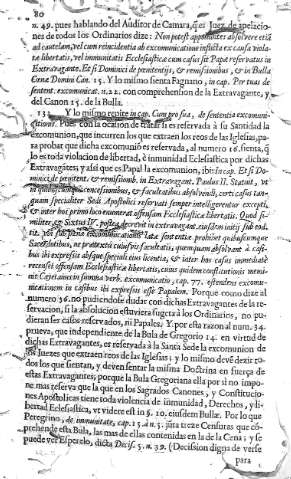 80
n. 49. pues hablando del Auditor de Camara, q̃ es Juez de apelacio-
nes de todos los Ordinarios dize: Non potest appellantes absolvere etiã
ad cautelam, vel cum reincidentia ab excommunicatione inflicta ex causa viola-
tæ libertatis, vel immunitatis Ecclesiasticæ cum casus sit Papæ reservatus in
Extravagante. Et si Dominici de pœnitentijs, & remissionibus, & in Bulla
Cenæ Domini Can. 15. Y lo mismo sienta Fagnano, in cap. Per tuas de
sentent. excommunicat. n. 22. con comprehension de la Extravagante, y
del Canon 15. de la Bulla.
Y lo mismo repite in cap. Cum pro sua, de sententia excomuni-
Pues con la ocasion de estàr reservada à su Santidad la
excomunion, que incurren los que extraen los reos de las Iglesias, pa-
ra probar que dicha excomuniõ es reservada, al numero 16. sienta, q̃
lo es toda violacion de libertad, è inmunidad Eclesiastica por dichas
Extravagãtes; y assi que es Papal la excomunion, ibi: In cap. Et si Do-
minici de pœnitent. & remissionib. in Extravagant. Paulus II. Statuit, ut
in concessionibus, & facultatibus absolvendi, certi casus tan-
quam specialiter Sedi Apostolici reservati semper intelligerentur excepti,
& inter hos primo loco numerat offensam Ecclesiasticæ libertatis. Quod si-
militer & Sixtus IV. postea decrevit in extravagant. eiusdem tituli sub eod.
latæ sententiæ prohibet quibuscunque
Sacerdotibus, ne prætextu cuiusvis facultatis, quemquam absolvant à casi-
bus ibi expressis absque speciali eius licentia, & inter hos casus
recenset offensam Ecclesiasticæ libertatis, cuius quidem constitutionis memi-
nit Caietanus in summa verb. excommunicatio, cap. 77. ostendens excomu-
nicationem in casibus ibi expressis esse Papalem. Porque como dize el
numero 36. no pudiendole dudar con dichas Extravagantes de la re-
servacion, si la absolucion estuviera sugeta à los Ordinarios, no pu-
dieran ser casos reservados, ni Papales. Y por esta razon al num. 34.
prueva, que independente de la Bula de Gregorio 14. en virtud de
dichas Extravagantes, es reservada à la Santa Sede la excomunion de
los Juezes que extraen reos de las Iglesias; y lo mismo devè dezir to-
dos los que sientan, y deven sentar la misma Doctrina en fuerça de
estas Extravagantes; porque la Bula Gregoriana ella por si no impo-
ne mas reserva que la que en los Sagrados Canones, y Constitucio-
nes Apostolicas tiene toda violencia de inmunidad, Derechos, y li-
bertad Eclesiastica, vt videre est in §. 10. eiusdem Bullæ. Por lo que
Peregrino, de immunitate, cap. 15. à n. 5. jũta treze Censuras que cõ-
prehende esta Bula, las mas de ellas contenidas en la de la Cena; y se
puede ver Esperelo, dicta Decis. 5. n. 39. (Decision digna de verse
para